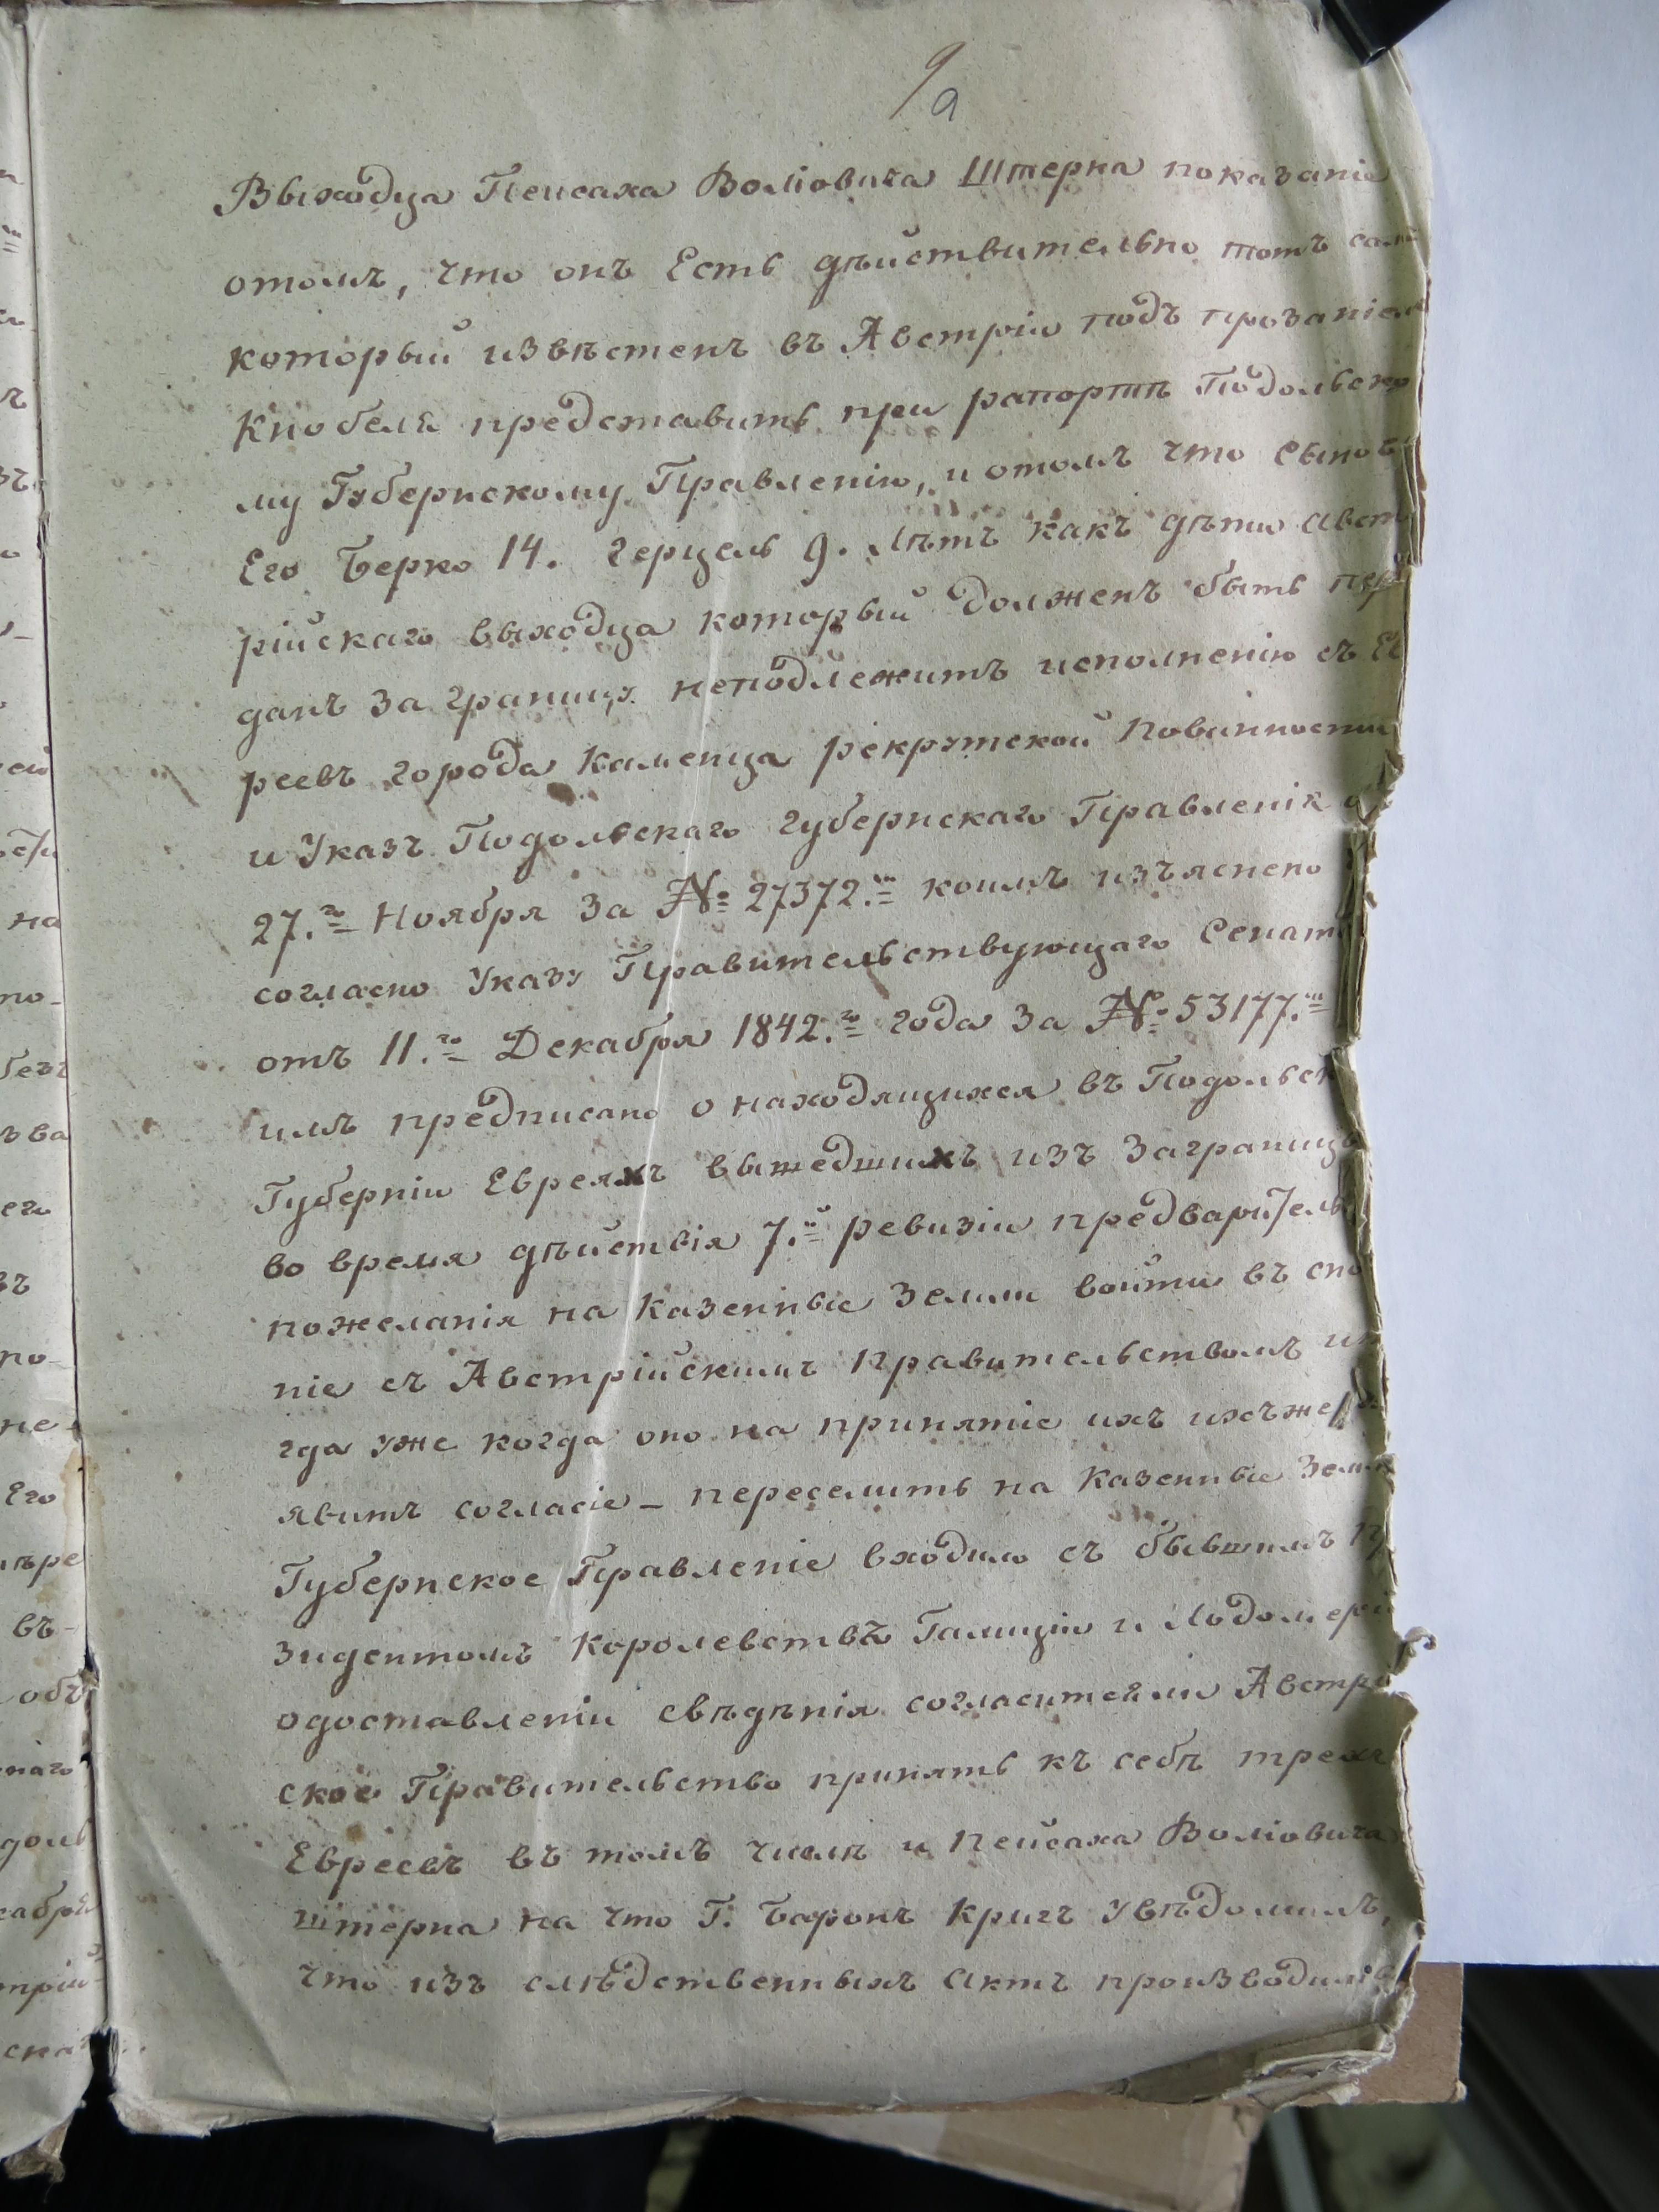 9/a
Выходца Пейсаха Волiовича Штерна показанiе
отомъ, что онъ Есть дѣйствительно тотъ сам
который извѣстенъ въ Австрiи подъ прозванiем
Кнобеля представить при рапортѣ Подольско
му Губернскому Правленiю, и отомъ что Сынов
Его Берко 14. Герцель 9. лѣтъ какъ дѣти Авст
рiйскаго выходца который долженъ быть пер
данъ за границу. неподлежитъ исполненiю съ Ев
реевъ города Каменца рекрутской повинности
и Указъ Подольскаго Губернскаго Правленiя о
27.го Ноября за № 27372.м коимъ изъяснено
согласно Указу Правительствующаго Сената
отъ 11.го Декабря 1842.го года за № 53177.м
имъ предписано о находящихся въ Подольск
Губернiи Евреяхъ вышедшихъ изъ Заграницы
во время дѣйствiя 7.й ревизiи предварительн
пожеланiя на Казенные Земли войти въ сно
нiе съ Австрiйскимъ Правительствомъ и
гда уже когда оно на принятiе ихъ
явитъ согласiе – переселить на Казенные Земли
Губернское Правленiе входило съ бывшимъ Пр
зидентомъ Королевствъ Галицiи и Лодомерi
одоставленiи свѣдѣнiя согласится ли Австрi
ское Правительство принять къ себѣ трехъ
Евреевъ въ томъ числѣ и Пейсаха Волiовича
Штерна на что Г. Баронъ Кригъ увѣдомилъ,
что изъ слѣдственныхъ Актъ производив